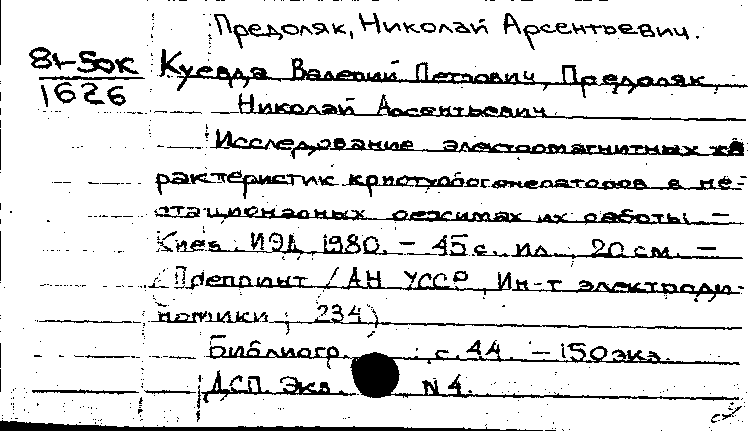 Предоляк, Николай Арсентьевич.
81-5ок
1626
Куевда Валерий Петрович, Предоляк,
Николай Арсентьевич
Исследование электромагнитных ха
рактеристик криотурбогенераторов в не-
стационарных режимах их работы. —
Киев: ИЭД, 1980. — 45 с. ил.; 20 см. —
(Препринт / АН УССР, Ин-т электроди-
намики; 234)
Библиогр.: с. 44. — 150 экз.
ДСП. Экз. N 4.